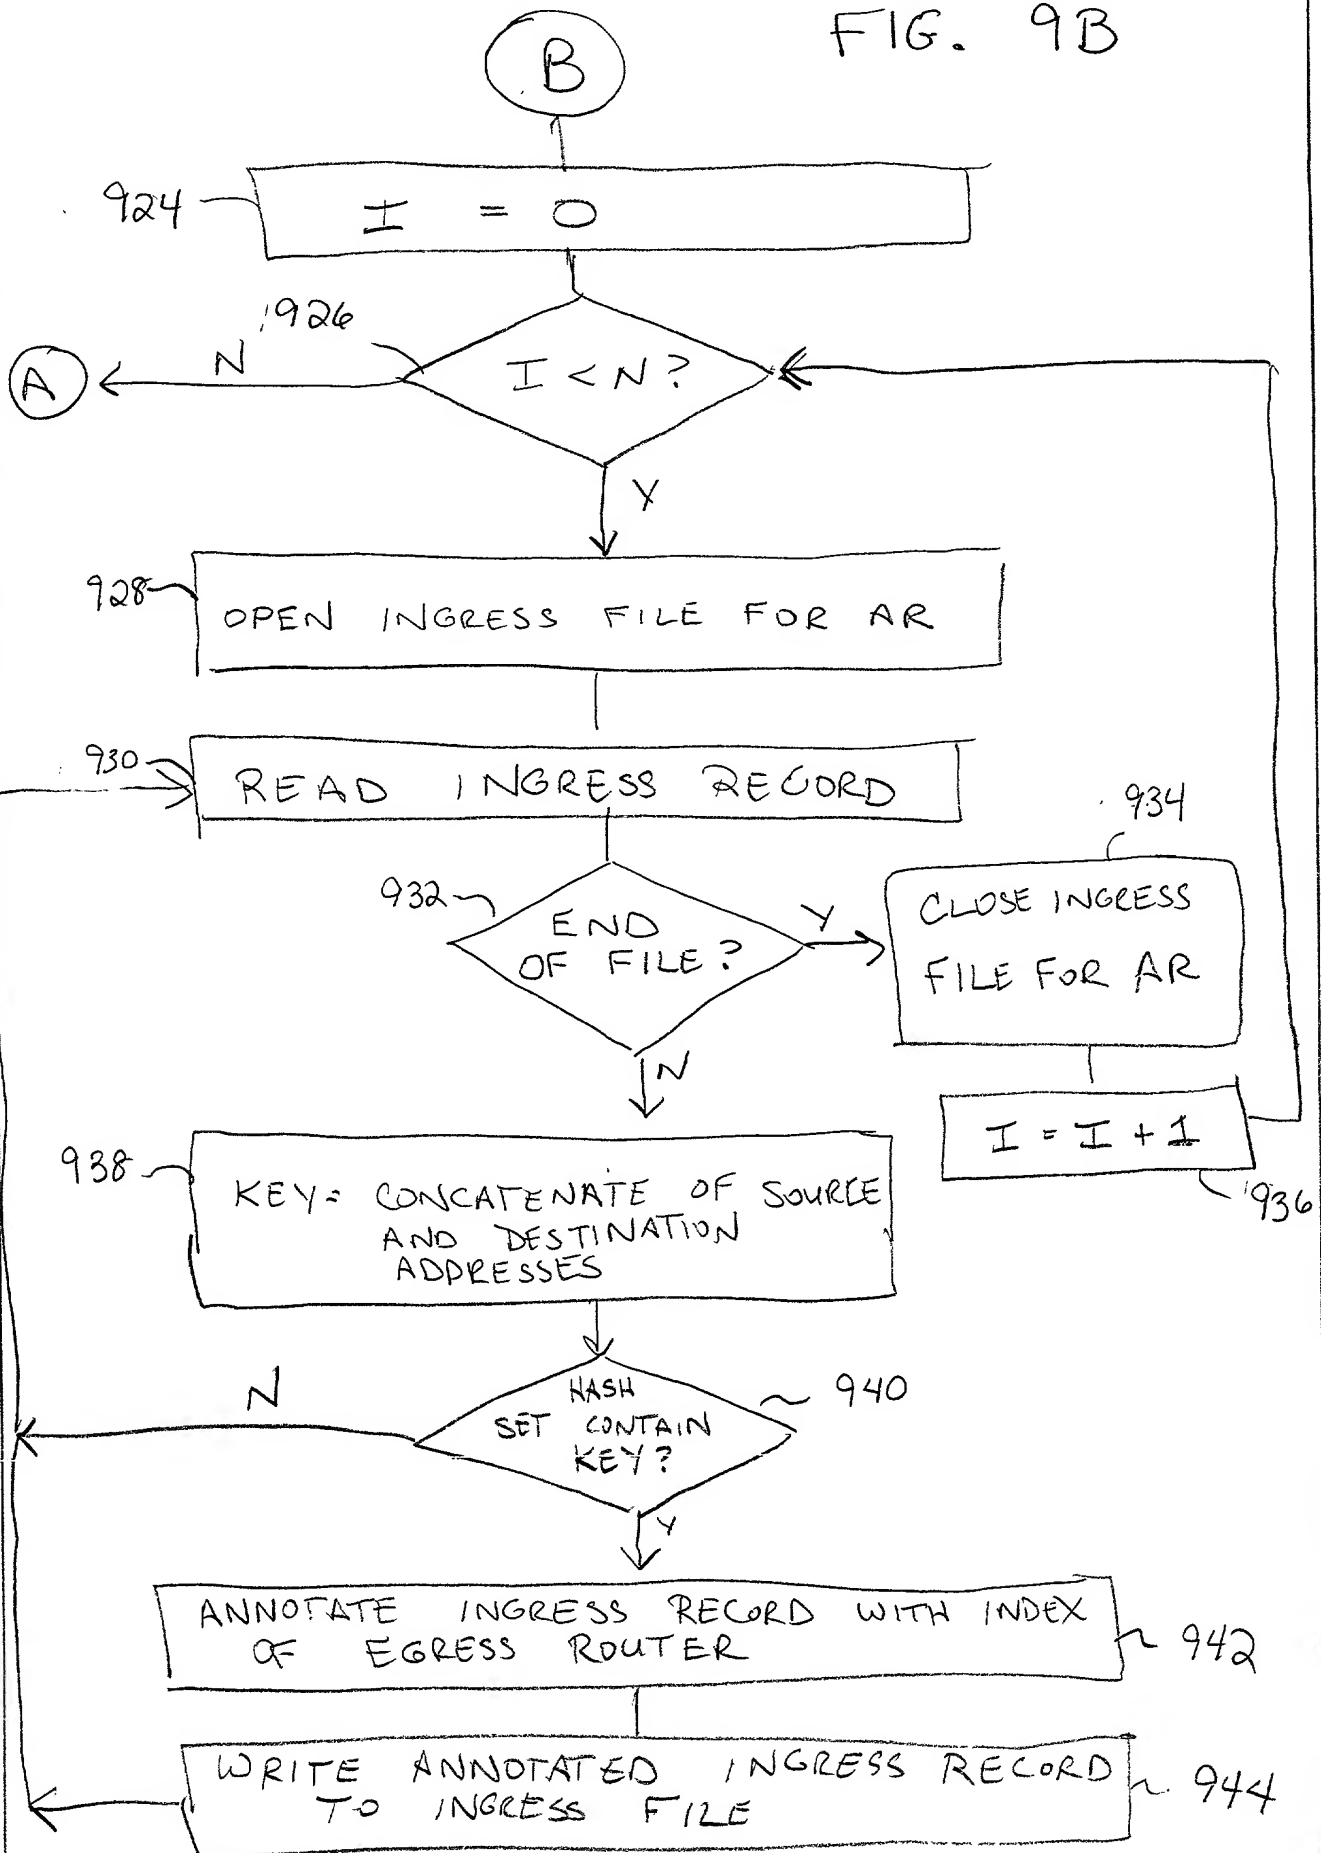 FIG. 9B
B
924
I = 0
926
N
A
I < N ?
Y
928
OPEN INGRESS FILE FOR AR
930
READ INGRESS RECORD
934
932
END
OF FILE ?
Y
CLOSE INGRESS
FILE FOR AR
N
I = I + 1
936
938
KEY = CONCATENATE OF SOURCE
AND DESTINATION
ADDRESSES
N
HASH
SET CONTAIN
KEY ?
940
Y
ANNOTATE INGRESS RECORD WITH INDEX
OF EGRESS ROUTER
942
WRITE ANNOTATED INGRESS RECORD
TO INGRESS FILE
944